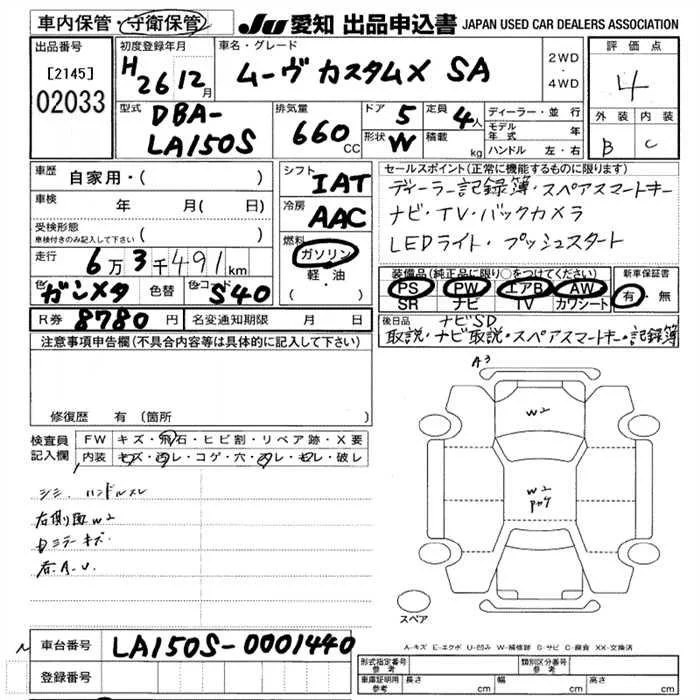 車内保管・守衛保管
JU 愛知 出品申込書 JAPAN USED CAR DEALERS ASSOCIATION
出品番号
[2145]
02033
初度登録年月
H26 12月
車名・グレード
ムーヴ カスタムX SA
2WD
・
4WD
評価点
4
外装 内装
B C
型式
DBA-
LA150S
排気量
660 CC
ドア 5
形状 W
定員 4人
積載 kg
ディーラー・並行
モデル年式 年
ハンドル 左・右
車歴
自家用・( )
車検 年 月( 日)
受検形態
車検付きのみ記入して下さい ( )
走行 6万3千491km
色 ガンメタ 色替 色コード S40
シフト
IAT
冷房
AAC
燃料
ガソリン
軽・油
( )
セールスポイント(正常に機能するものに限ります)
ディーラー記録簿・スペアスマートキー
ナビ・TV・バックカメラ
LEDライト・プッシュスタート
装備品(純正品に限り○をつけてください)
PS PW エアB AW
SR ナビ TV カワシート
新車保証書
有・無
R券 8780円 名変通知期限 月 日
後日品 ナビSD
取説・ナビ取説・スペアスマートキー・記録簿
注意事項申告欄(不具合内容等は具体的に記入して下さい)
修復歴 有(箇所 )
検査員
記入欄
FW キズ・飛石・ヒビ割・リペア跡・X要
内装 キズ・汚レ・コゲ・穴・スレ・モレ・破レ
シミ、ハンドルスレ
右側面W2
ミラーキズ
A.U.
A3
W2
W2
スペア
A-キズ E-エクボ U-凹み W-補修跡 S-サビ C-腐食 XX-交換済
車台番号 LA150S-0001440
登録番号
形式指定番号 参考
類別区分番号 参考
車庫証明用 参考 長さ cm 幅 cm 高さ cm